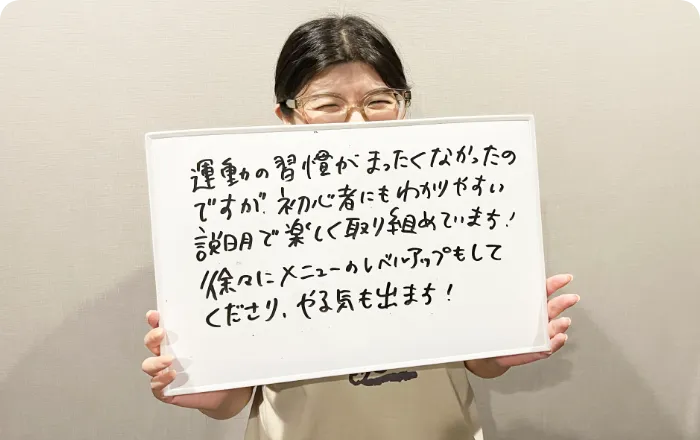 運動の習慣がまったくなかったの
ですが、初心者にもわかりやすい
説明で楽しく取り組めています!
徐々にメニューのレベルアップもして
くださり、やる気も出ます!